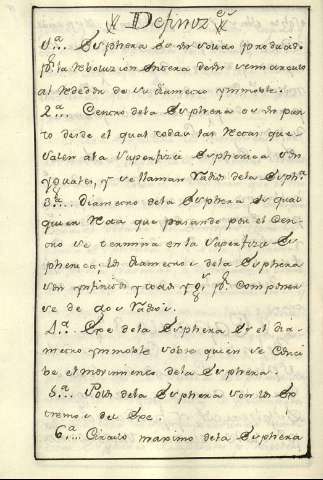 Definiz.es
1.ª... Esphera es un solido producido
p.r la Reboluzion entera de un semicirculo
al Rededor de su diametro ynmoble.
2.ª... Centro dela Esphera es un pun
to desde el qual todas las Rectas que
salen ala superfizie Espherica son
yguales, y se llaman Radios dela Esph.ª
3.ª... Diametro dela Esphera es qual
quier Recta que pasando por el Cen
tro se termina en la superfizie Es
pherica; los diametros dela Esphera
son ynfinitos y todos yg.s p.r componer
se de dos Radios.
4.ª... Exe dela Esphera es el dia
metro ynmoble sobre quien se Conci
be el movimiento dela Esphera.
5.ª... Polos dela Esphera son los Ex
tremos del Exe.
6.ª... Circulo maximo dela Esphera